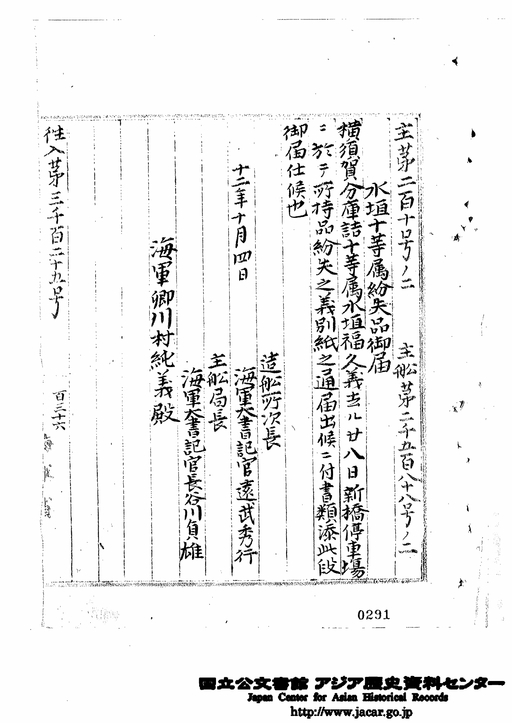 主第二百十号ノ二　主船第二千五百八十八号ノ二
水垣十等属紛失品御届
横須賀分庫詰十等属水垣福久義去ル廿八日新橋停車場
ニ於テ所持品紛失之義別紙之通届出候ニ付書類添此段
御届仕候也
十二年十月四日
造船所次長
海軍大書記官遠武秀行
主船局長
海軍大書記官長谷川貞雄
海軍卿川村純義殿
往入第三千百二十五号
百三十六
0291
国立公文書館 アジア歴史資料センター
Japan Center for Asian Historical Records
http://www.jacar.go.jp